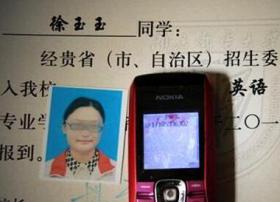 徐玉玉 同学：
经贵省（市、自治区）招生委
入我校 英语
专业学 二〇一
报到。
NOKIA